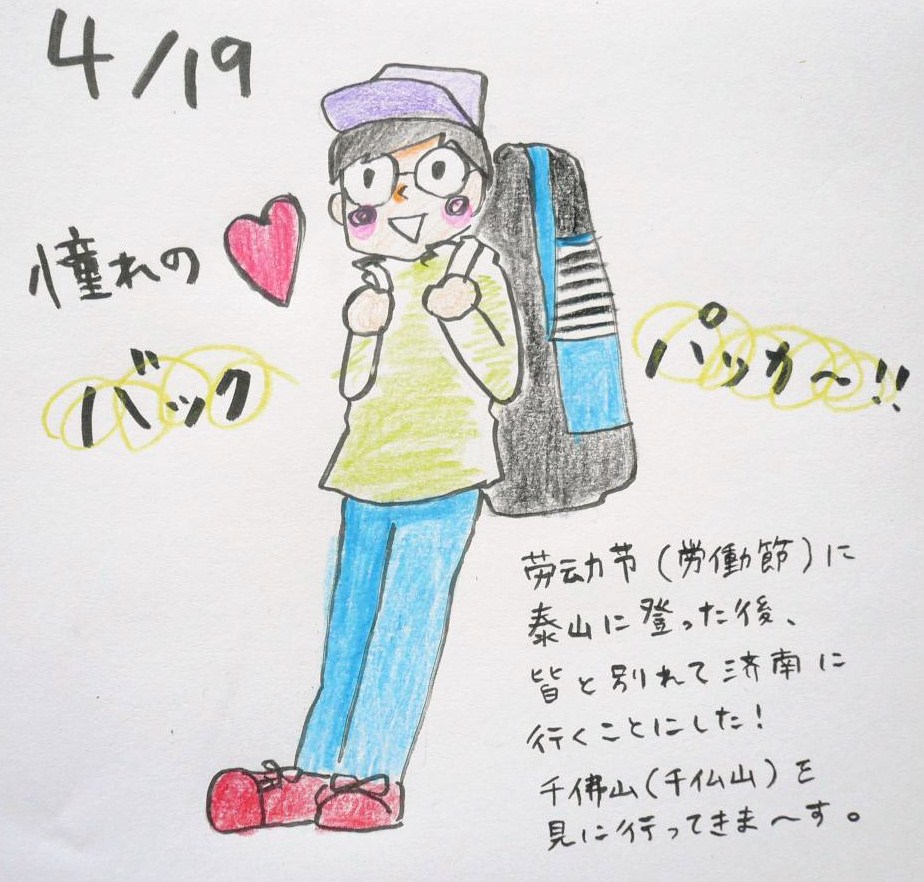 4/19
憧れの
バック
パッカ〜!!
劳动节(労働節)に
泰山に登った後、
皆と別れて済南に
行くことにした!
千佛山(千仏山)を
見に行ってきま〜す。